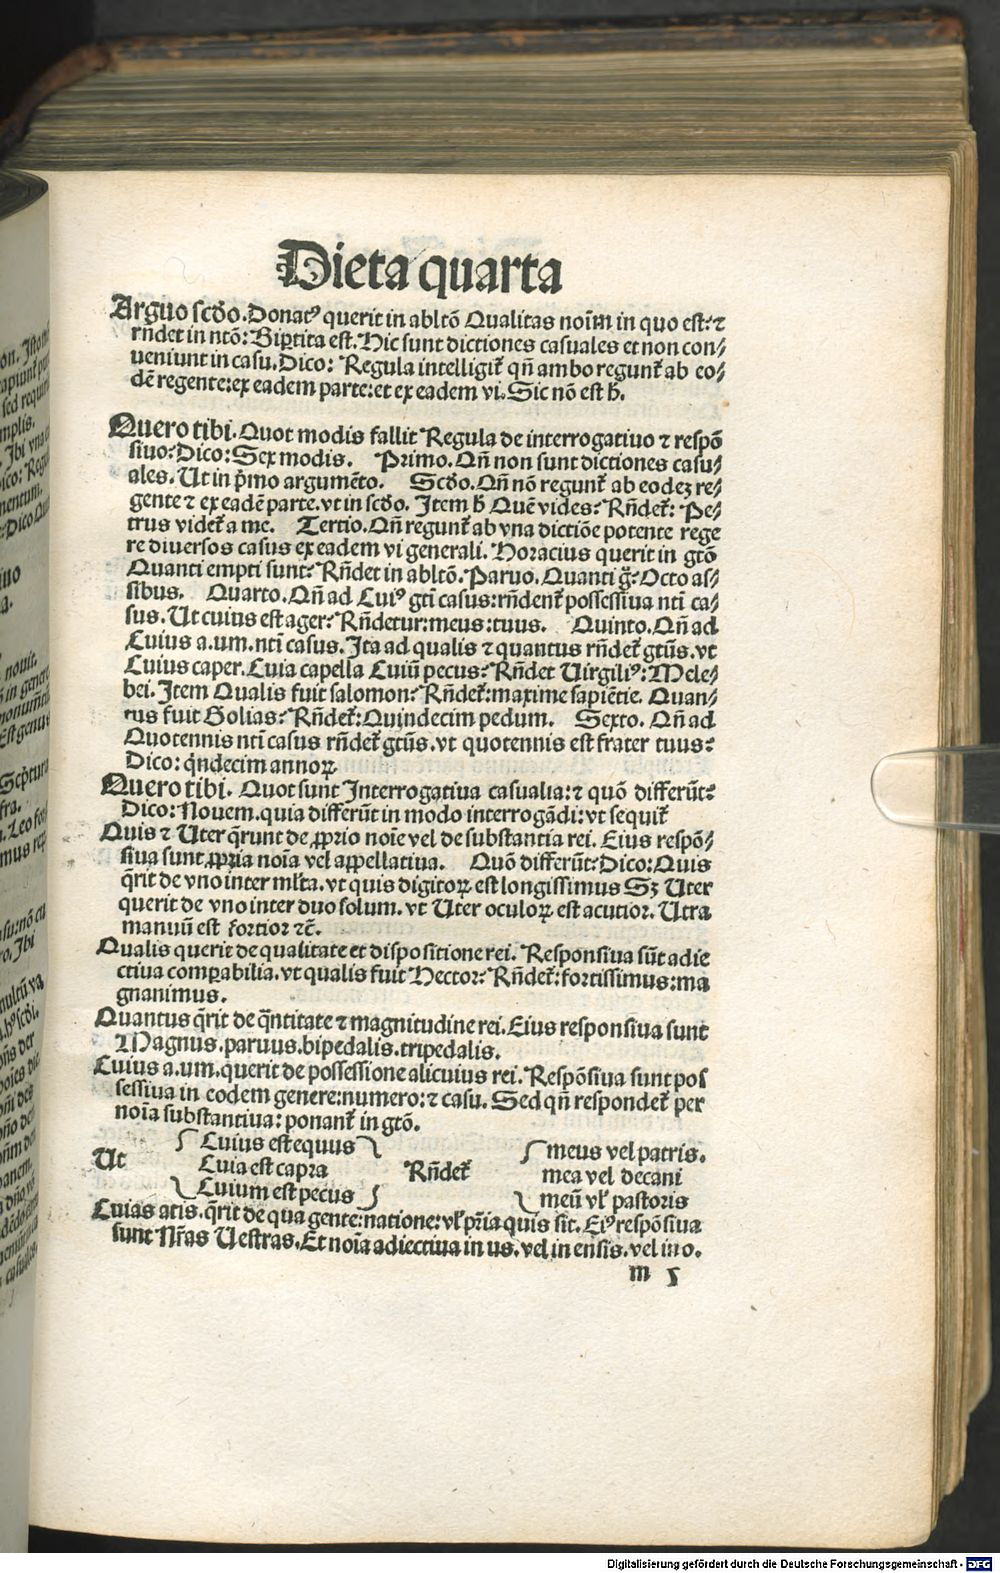 Dieta quarta
Arguo scďo. Donatꝰ querit in abltō Qualitas noīm in quo est: ⁊
rn̄det in ntō: Bip̱tita est. Hic sunt dictiones casuales et non con⸗
ueniunt in casu. Dico: Regula intelligit᷑ qn̄ ambo regunt᷑ ab eo⸗
dē regente: ex eadem parte: et ex eadem vi. Sic nō est ħ.
Quero tibi. Quot modis fallit Regula de interrogatiuo ⁊ respō
siuo: Dico: Sex modis. Primo. Qn̄ non sunt dictiones casu⸗
ales. Ut in p̄mo argumēto. Scďo. Qn̄ nō regunt᷑ ab eodeꝫ re⸗
gente ⁊ ex eadē parte. vt in scďo. Item ħ Quē vides: Rn̄det᷑: Pe⸗
trus videt᷑ a me. Tertio. Qn̄ regunt᷑ ab vna dictiōe potente rege
re diuersos casus ex eadem vi generali. Horacius querit in gtō
Quanti empti sunt: Rn̄det in abltō. Paruo. Quanti g̊: Octo as⸗
sibus. Quarto. Qn̄ ad Cuiꝰ gti casus: rn̄dent᷑ possessiua nti ca⸗
sus. Ut cuius est ager: Rn̄detur: meus: tuus. Quinto. Qn̄ ad
Cuius a. um. nti casus. Ita ad qualis ⁊ quantus rn̄det᷑ gtūs. vt
Cuius caper. Cuia capella Cuiū pecus: Rn̄det Uirgiliꝰ: Mele⸗
bei. Item Qualis fuit salomon: Rn̄det᷑: maxime sapiētie. Quan⸗
tus fuit Golias: Rn̄det᷑: Quindecim pedum. Sexto. Qn̄ ad
Quotennis nti casus rn̄det᷑ gtūs. vt quotennis est frater tuus:
Dico: q̇ndecim annoꝝ.
Quero tibi. Quot sunt Interrogatiua casualia: ⁊ quō differūt:
Dico: Nouem. quia differūt in modo interrogādi: vt sequit᷑
Quis ⁊ Uter q̄runt de ꝓprio noīe vel de substantia rei. Eius respō⸗
siua sunt ꝓpria noīa vel appellatiua. Quō differūt: Dico: Quis
q̄rit de vno inter ml̓ta. vt quis digitoꝝ est longissimus Sꝫ Uter
querit de vno inter duo solum. vt Uter oculoꝝ est acutior. Utra
manuū est fortior ⁊c̄.
Qualis querit de qualitate et dispositione rei. Responsiua sūt adie
ctiua comp̱abilia. vt qualis fuit Hector: Rn̄det᷑: fortissimus: ma
gnanimus.
Quantus q̄rit de q̄ntitate ⁊ magnitudine rei. Eius responsiua sunt
Magnus. paruus. bipedalis. tripedalis.
Cuius a. um. querit de possessione alicuius rei. Respōsiua sunt pos
sessiua in eodem genere: numero: ⁊ casu. Sed qn̄ respondet᷑ per
noīa substantiua: ponant᷑ in gtō.
Cuius est equus meus vel patris.
Ut Cuia est capra Rn̄det᷑ mea vel decani
Cuium est pecus meū vl̓ pastoris
Cuias atis. q̄rit de qua gente: natione: vl̓ pr̄ia quis sit. Eiꝰ respōsiua
sunt Nr̄as Uestras. Et noīa adiectiua in us. vel in ensis. vel in o.
m 5
Digitalisierung gefördert durch die Deutsche Forschungsgemeinschaft - DFG